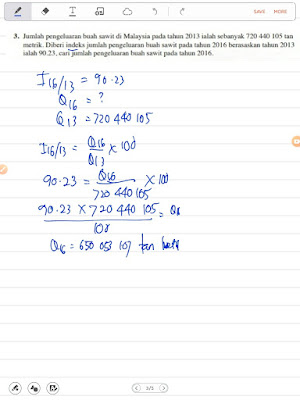 SAVE MORE
3. Jumlah pengeluaran buah sawit di Malaysia pada tahun 2013 ialah sebanyak 720 440 105 tan
metrik. Diberi indeks jumlah pengeluaran buah sawit pada tahun 2016 berasaskan tahun 2013
ialah 90.23, cari jumlah pengeluaran buah sawit pada tahun 2016.
I16/13 = 90.23
Q16 = ?
Q13 = 720 440 105
I16/13 = Q16/Q13 × 100
90.23 = Q16/720 440 105 × 100
90.23 × 720 440 105/100 = Q16
Q16 = 650 053 107 tan
1/1